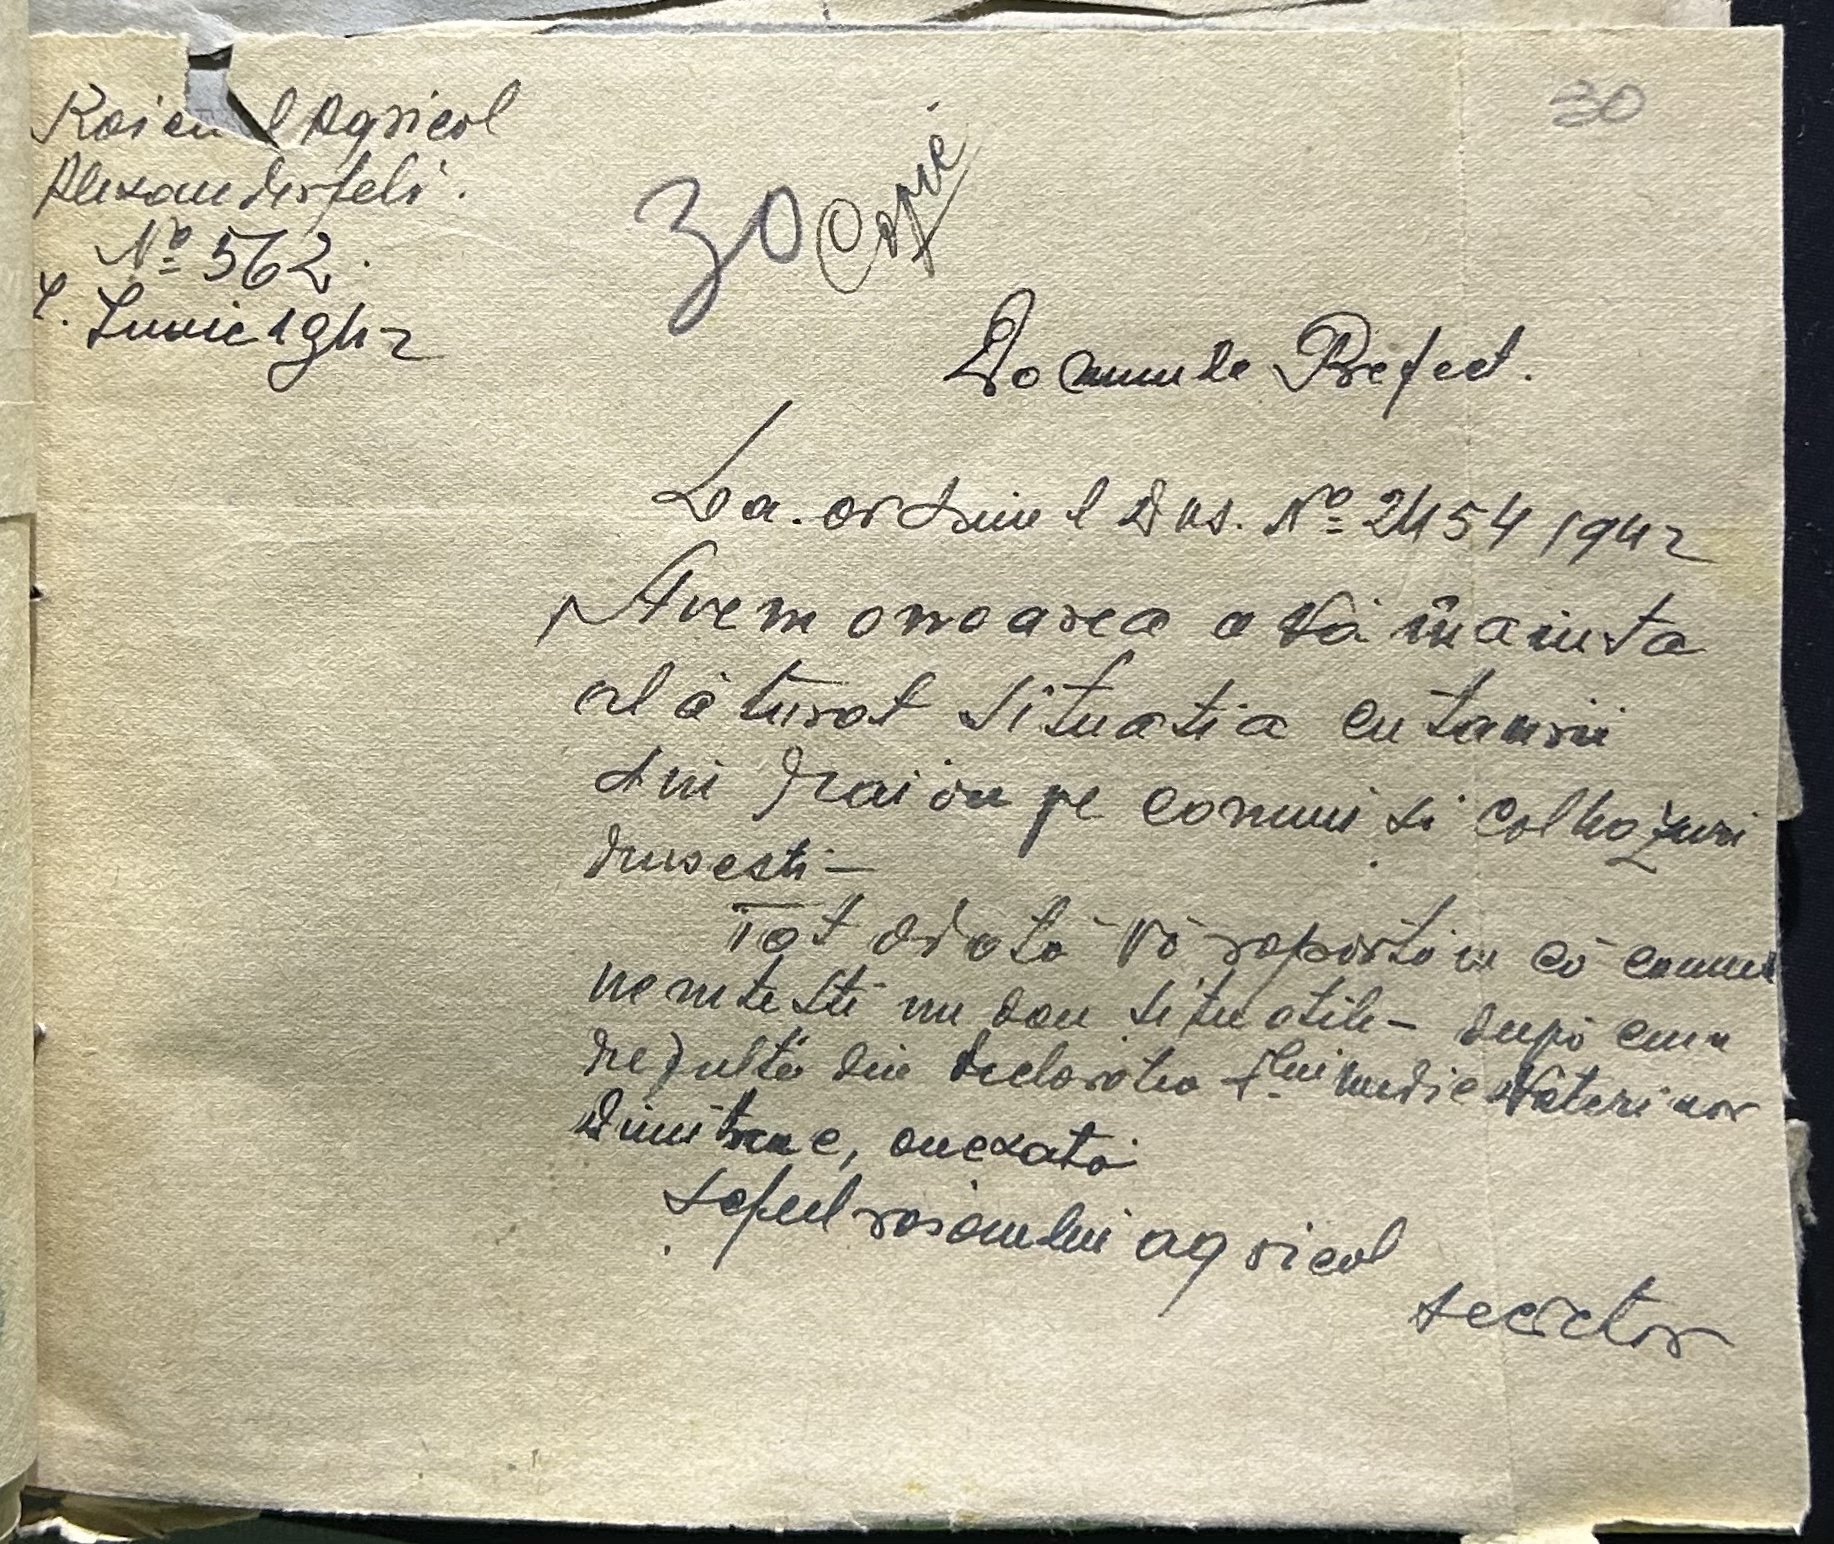 30
Raionul Agricol
Alexanderfeld.
Nº 562.
4. Iunie 1942
30 Copie
Domnule Prefect.
La. ordinul Dvs. Nº 2454 1942
Avem onoarea a vă înainta
alăturat situatia cu taurii
din Raion pe comuni si colhozuri
rusesti –
Tot odată vă raportăm că comunele
nemtesti nu dau situatile – după cum
rezultă din declaratia d.lui medic Vaterinar
Dimitriue, anexată
seful raionului agricol
secretor